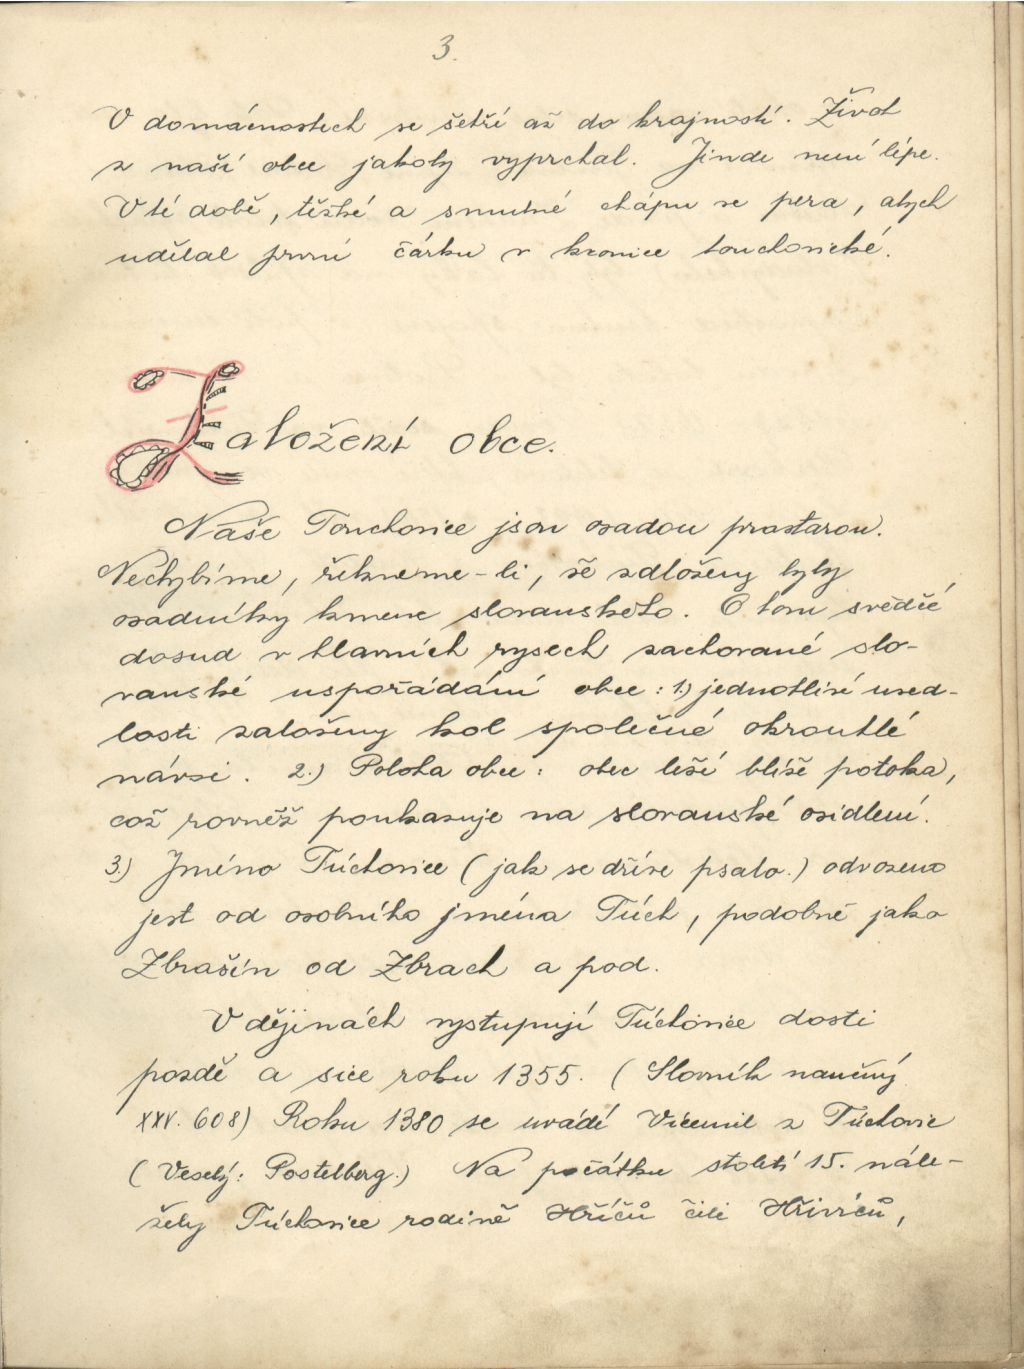 3.
V domácnostech se šetří až do krajností. Život
z naší obce jakoby vyprchal. Jinde není lépe.
V té době, těžké a smutné chápu se pera, abych
udělal první čárku v kronice touchovické.
Založení obce.
Naše Touchovice jsou osadou prastarou.
Nechybíme, řekneme-li, že založeny byly
osadníky kmene slovanského. O tom svědčí
dosud v hlavních rysech zachované slo-
vanské uspořádání obce: 1.) jednotlivé used-
losti založeny kol společné okrouhlé
návsi. 2.) Poloha obce: obec leží blíže potoka,
což rovněž poukazuje na slovanské osídlení.
3.) Jméno Túchovice (jak se dříve psalo.) odvozeno
jest od osobního jména Túch, podobně jako
Zbrašín od Zbrach a pod.
V dějinách vystupují Túchovice dosti
pozdě a sice roku 1355. (Slovník naučný
XXV. 608) Roku 1380 se uvádí Vícemil z Túchovic
(Veselý: Postelberg.) Na počátku století 15. nále-
žely Túchovice rodině Hříčů čili Hřivíců,